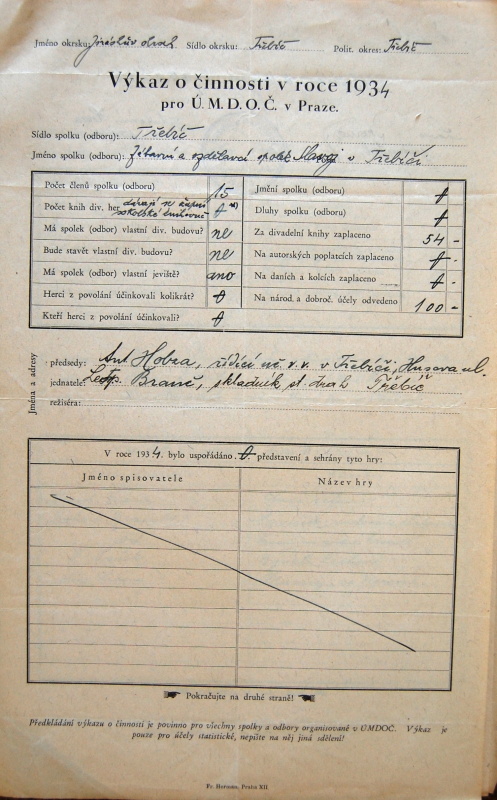 Jméno okrsku: Jiráskův okrsek Sídlo okrsku: Třebíč Polit. okres: Třebíč
Výkaz o činnosti v roce 1934
pro Ú.M.D.O.Č. v Praze.
Sídlo spolku (odboru): Třebíč
Jméno spolku (odboru): Zábavní a vzdělávací spolek v Třebíči
Počet členů spolku (odboru) 15
Počet knih div. her 0
Má spolek (odbor) vlastní div. budovu? ne
Bude stavět vlastní div. budovu? ne
Má spolek (odbor) vlastní jeviště? ano
Herci z povolání účinkovali kolikrát? 0
Kteří herci z povolání účinkovali? 0
Jmění spolku (odboru) 0
Dluhy spolku (odboru) 0
Za divadelní knihy zaplaceno 54 -
Na autorských poplatcích zaplaceno 0 -
Na daních a kolcích zaplaceno 0 -
Na národ. a dobroč. účely odvedeno 100 -
Jména a adresy
předsedy: Ant. Hobza, řídící uč. v. v. v Třebíči, Husova ul.
jednatele: Branč, skladník st. drah Třebíč
režiséra:
V roce 1934. bylo uspořádáno 0 představení a sehrány tyto hry:
Jméno spisovatele Název hry
Pokračujte na druhé straně!
Předkládání výkazu o činnosti je povinno pro všechny spolky a odbory organisované v ÚMDOČ. Výkaz je
pouze pro účely statistické, nepište na něj jiná sdělení!
Fr. Herman, Praha XII.